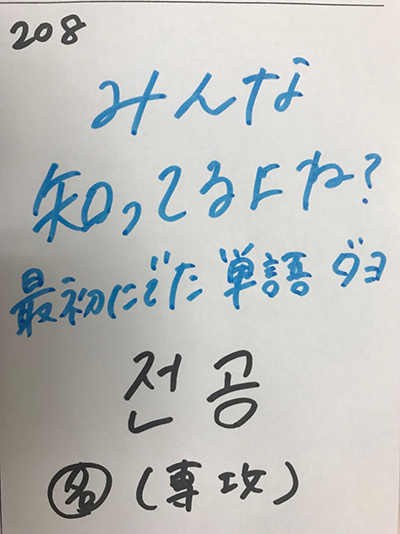 208
みんな
知ってるよね?
最初にでた単語ダヨ
전공
名(専攻)